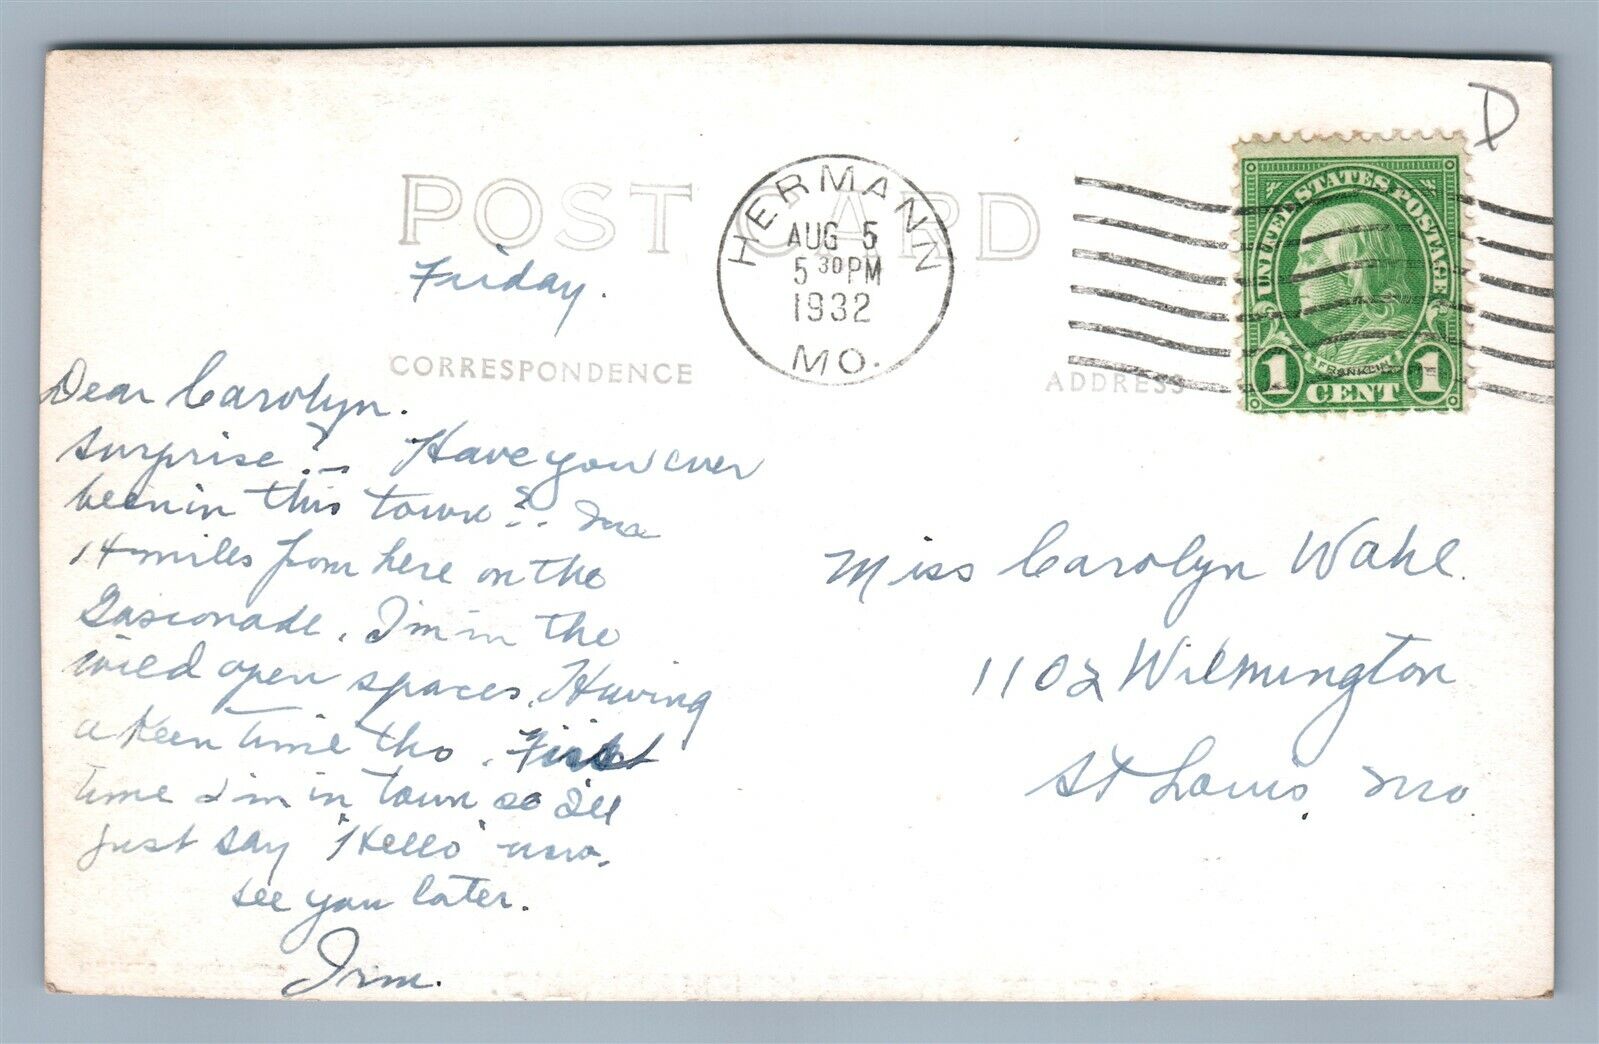 D
POST CARD
HERMANN
AUG 5
5 30 PM
1932
MO.
UNITED STATES POSTAGE
FRANKLIN
1 CENT 1
Friday.
CORRESPONDENCE
ADDRESS
Dear Carolyn.
Surprise? - Have you ever
been in this town?. I'm
14 miles from here on the
Gasconade. I'm in the
wild open spaces. Having
a keen time tho. First
time I'm in town so I'll
just say "Hello" now.
See you later.
Irm.
Miss Carolyn Wahl.
1102 Wilmington
St Louis, Mo